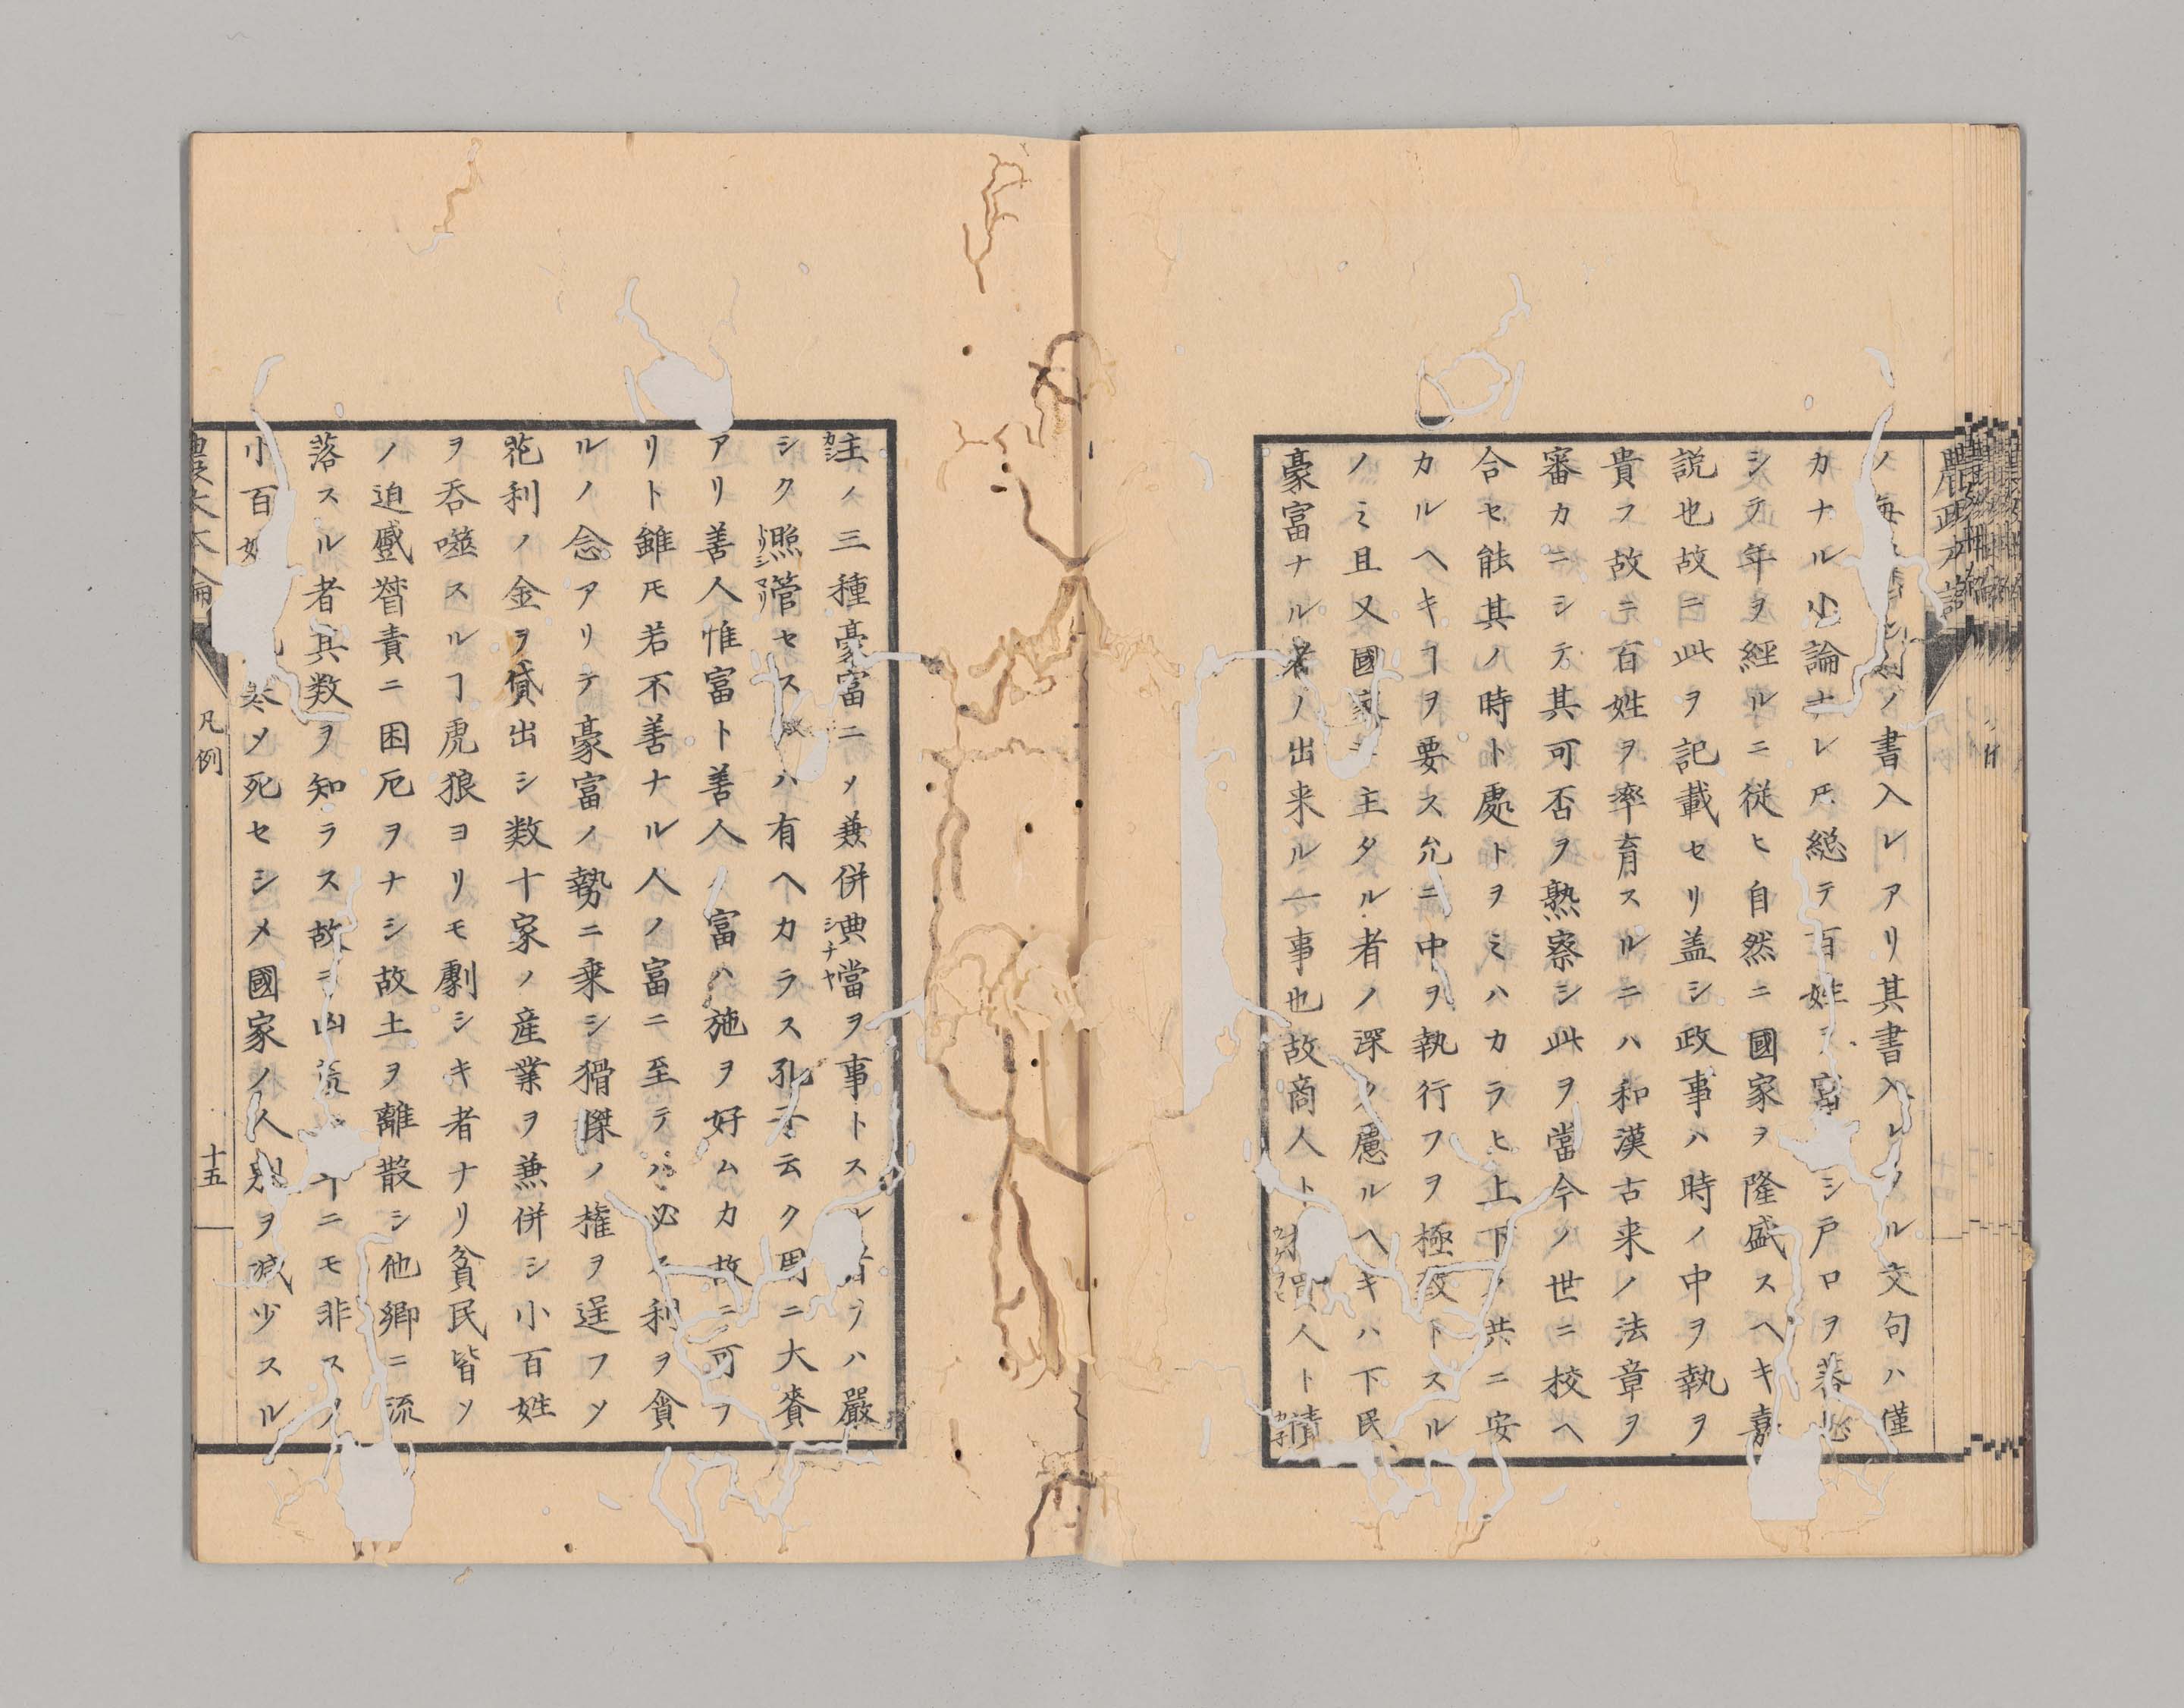 ノ毎ノ書入レアリ其書入レタル文句ハ僅
カナル小論ナレ𪜈総テ百姓ヲ富シ戸口ヲ蕃
シテ年ヲ經ルニ從ヒ自然ニ國家ヲ隆盛スヘキ嘉
説也故ニ此ヲ記載セリ盖シ政事ハ時ノ中ヲ執ヲ
貴フ故ニ百姓ヲ率育スルニハ和漢古来ノ法章ヲ
審カニシテ其可否ヲ熟察シ此ヲ當今ノ世ニ校ヘ
合セ能其ノ時ト處トヲミハカラヒ上下ノ共ニ安
カルヘキヿヲ要ス允ニ中ヲ執行フヲ極致トスル
ノミ且又國家ニ主タル者ノ深ク慮ルヘキハ下民
豪富ナル者ノ出来ル一事也故商人ト人ト債
主ノ三種豪富ニメ兼併典當ヲ事トスハ嚴
シク照管セスハ有ヘカラス孔子云ク周ニ大賚
アリ善人惟富ト善人ノ富ハ施ヲ好ムカ故ニ可フ
リト雖𪜈若不善ナル人ノ富ニ至テハ必ス利ヲ貪
ルノ念アリテ豪富ノ勢ニ乗シ猾傑ノ権ヲ逞フソ
花利ノ金ヲ貸出シ数十家ノ産業ヲ兼併シ小百姓
ヲ呑噬スルヿ虎狼ヨリモ劇シキ者ナリ貧民皆ソ
ノ迫蹙督責ニ困厄ヲナシ故土ヲ離散シ他郷ニ流
落スル者其数ヲ知ラス故ニ凶荒ニモ非スノ
小百死セシメ國家ノ人別ヲ減少スル
凡例
十五